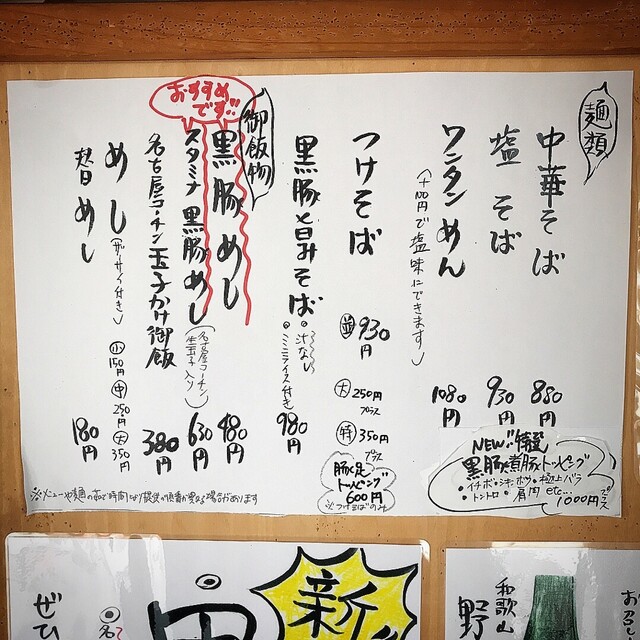 麺類
中華そば 880円
塩そば 930円
ワンタンめん 1080円
(+100円で塩味にできます)
つけそば
並 930円
大 250円プラス
特 350円プラス
豚足トッピング
600円
※つけそばのみ
黒豚旨みそば 980円
・汁なし
・ミニライス付き
御飯物
おすすめです!!
黒豚めし 480円
スタミナ黒豚めし 630円
(名古屋コーチン生玉子入り)
名古屋コーチン玉子かけ御飯 380円
めし(ザーサイ付き)
小 150円 中 250円 大 350円
替めし 180円
NEW!!特選
黒豚煮豚トッピング
・イチボ・ネホホサ・極上バラ
・トントロ・肩肉 etc...
1000円プラス
※メニューや麺の茹で時間により提供の順番が異なる場合があります
ぜひ
新
和歌山
野